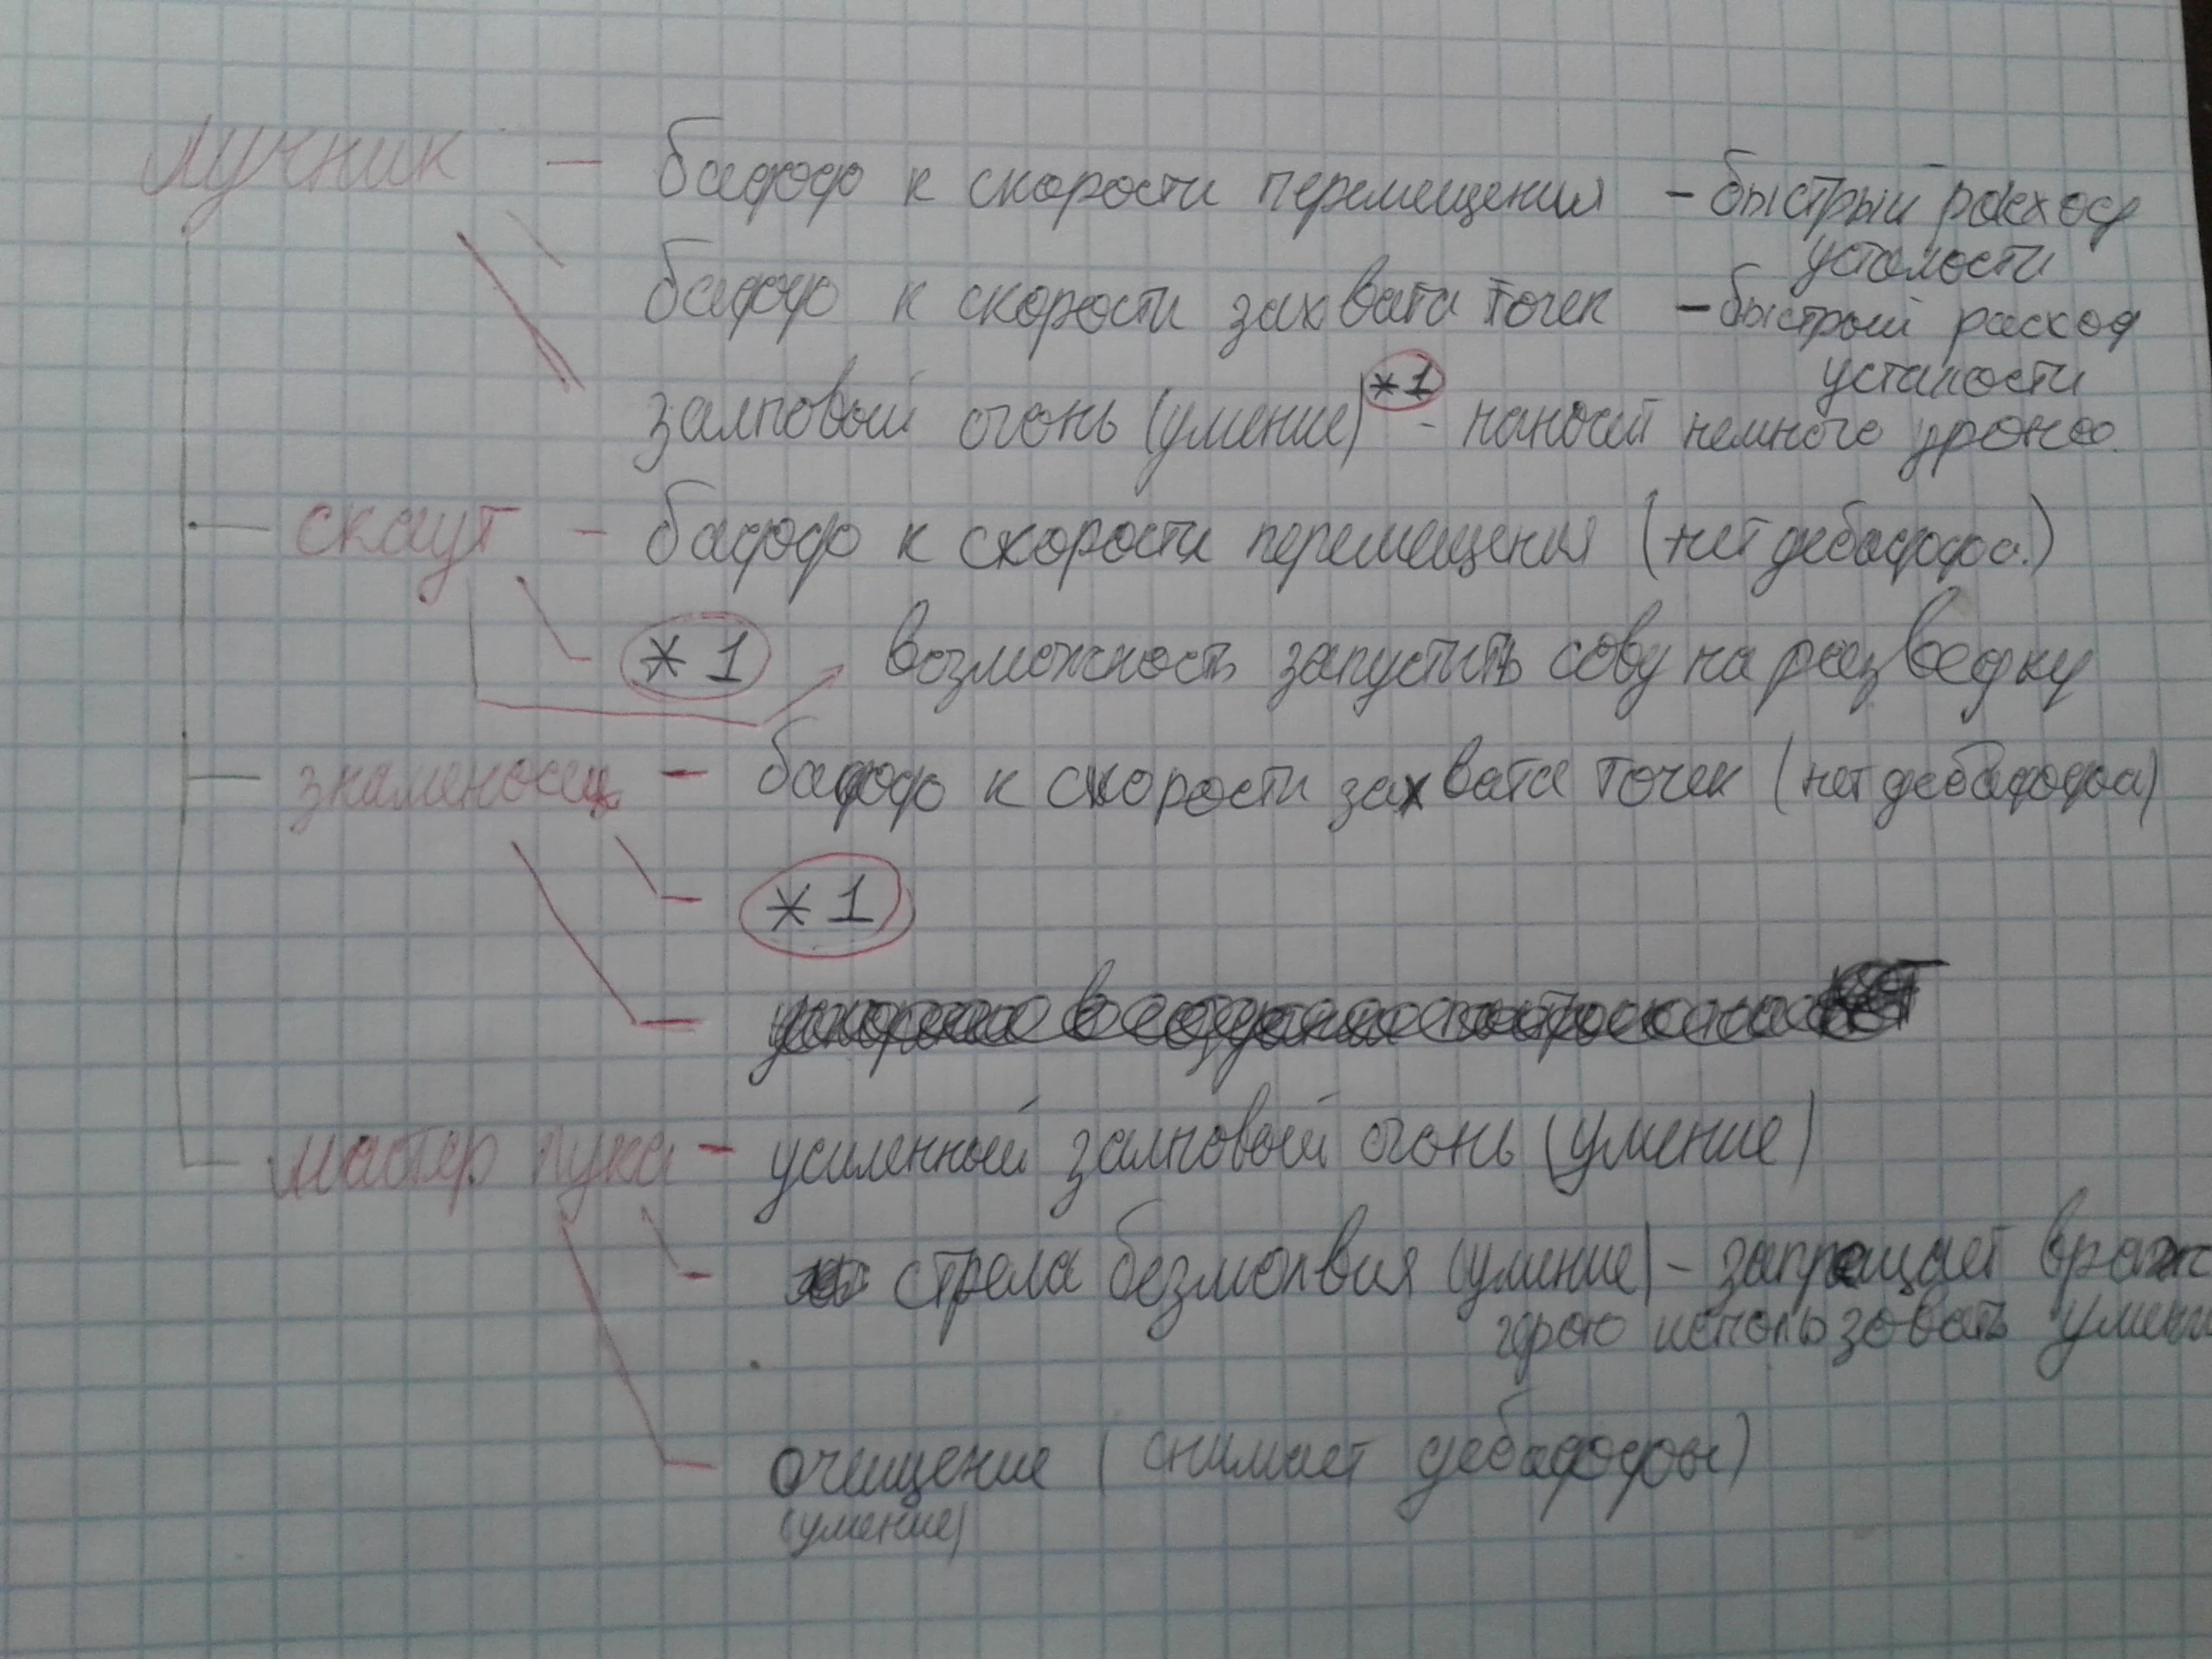 лучник — бафф к скорости перемещения – быстрый расход
усталости
бафф к скорости захвата точек – быстрый расход
усталости
залповый огонь (умение) *1 - наносит немного урона.
скаут – бафф к скорости перемещения (нет дебаффа.)
*1 возможность запустить сову на разведку
знаменосец – бафф к скорости захвата точек (нет дебаффа)
*1
мастер лука – усиленный залповый огонь (умение)
– стрела безмолвия (умение) – запрещает враж
герою использовать умени
очищение (снимает дебаффы)
(умение)